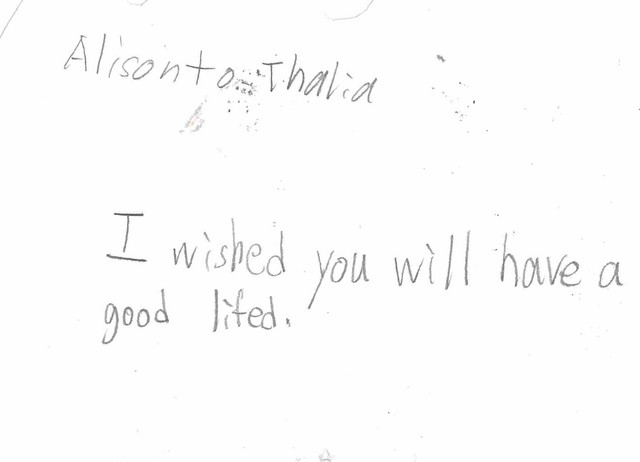 Alison to Thalia
I wished you will have a
good lifed.